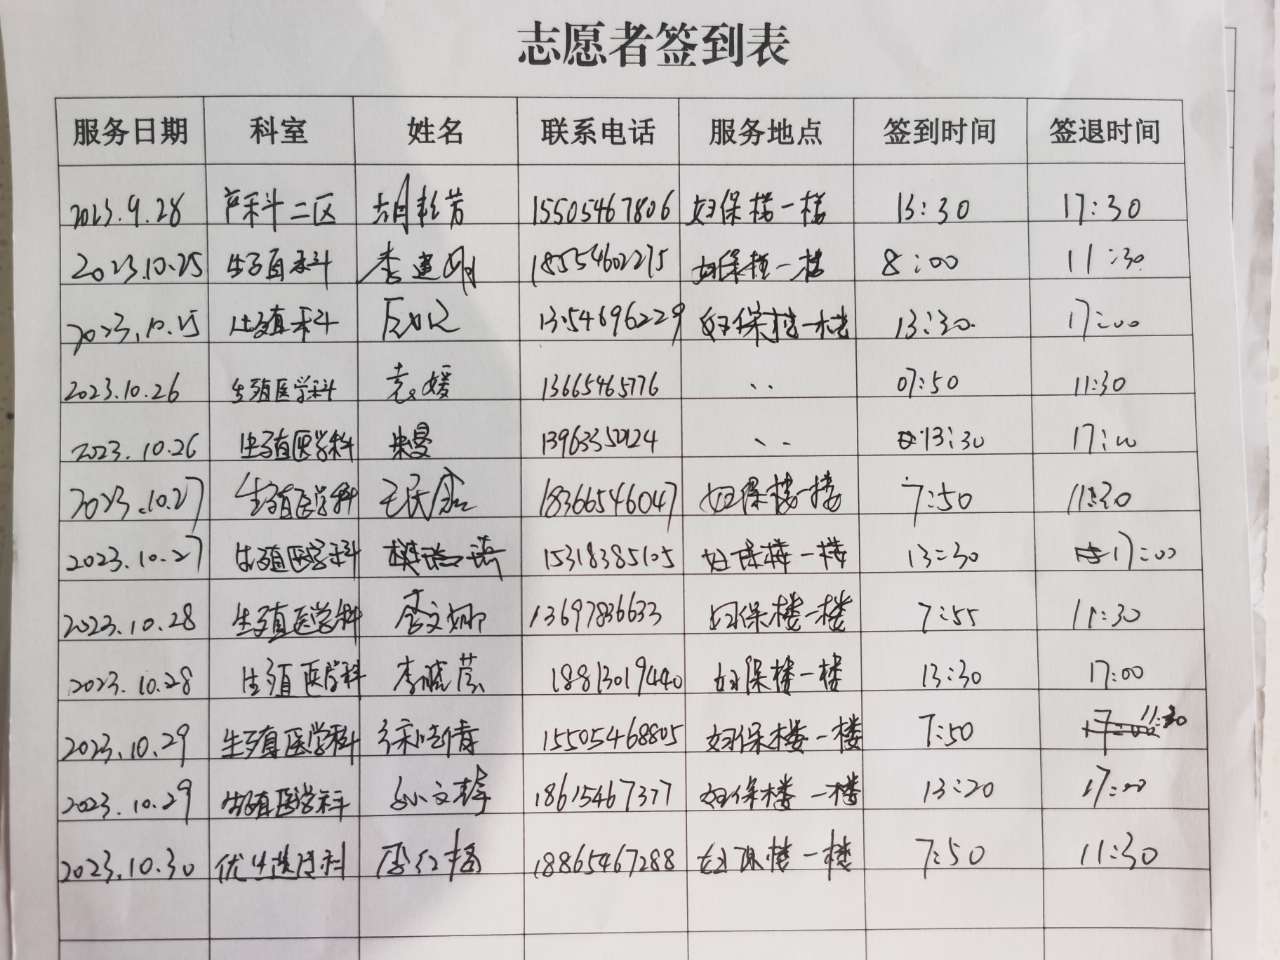 志愿者签到表
服务日期 科室 姓名 联系电话 服务地点 签到时间 签退时间
2023.9.28 产科二区 胡 芳 15505467806 妇保楼一楼 13:30 17:30
2023.10.25 生殖科 李建刚 18554602275 妇保楼一楼 8:00 11:30
2023.10.25 生殖科 妇保楼一楼 13:30 17:00
2023.10.26 生殖医学科 袁媛 13665465776 、、 07:50 11:30
2023.10.26 生殖医学科 13963550124 、、 13:30 17:00
2023.10.27 生殖医学科 王民 18366546047 妇保楼一楼 7:50 11:30
2023.10.27 生殖医学科 15318385105 妇保楼一楼 13:30 17:00
2023.10.28 生殖医学科 李文娜 13697836633 妇保楼一楼 7:55 11:30
2023.10.28 生殖医学科 李晓 18813019440 妇保楼一楼 13:30 17:00
2023.10.29 生殖医学科 徐晓倩 15505468805 妇保楼一楼 7:50 11:30
2023.10.29 生殖医学科 孙文 18615467377 妇保楼一楼 13:20 17:00
2023.10.30 优生遗传科 18865467288 妇保楼一楼 7:50 11:30